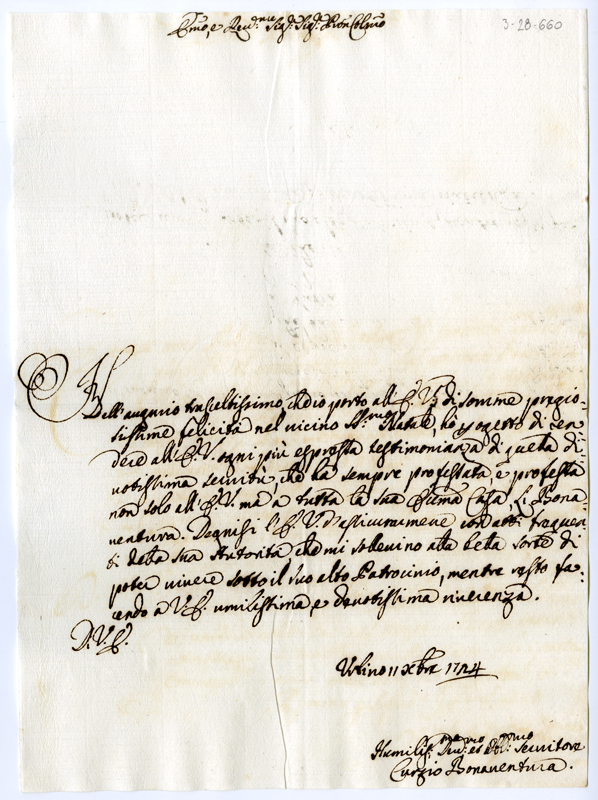 Emo, e Revd.mo Sig.r Sig.r Pron Colmo
3-28-660
Nell'augurio trasceltissimo, che io porto all'E. V. di somme pregio-
sissime felicità nel vicino SS.mo Natale hò oggetto di ren
dere all'E. V. ogni più espressa testimonianza di questa di-
uotissima seruitù, che hà sempre professata, e professa
non solo all'E. V. mà a tutta la sua Casa, Bona
uentura. Degnisi l'E. V. d'assicurarmene con atti frequen
ti della sua Autorità che mi solleuino alla bella sorte di
poter uiuere sotto il suo alto Patrocinio, mentre resto fa-
cendo a V. E. umilissima, e deuotissima riuerenza.
D. V. E.
Urbino 11 Xbre 1724
Humiliss. Deu.mo et Ob.mo Seruitore
Curzio Bonauentura.